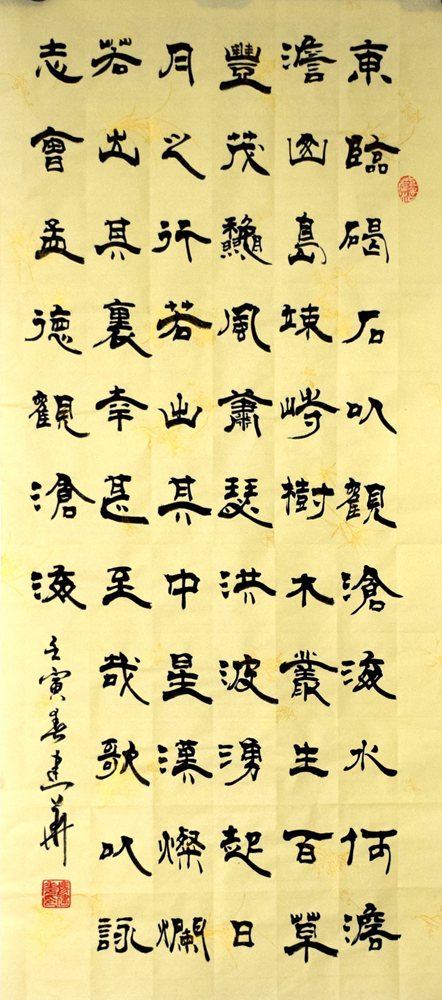 東臨碣石以觀滄海水何澹
澹山島竦峙樹木叢生百草
豐茂龝風蕭瑟洪波湧起日
月之行若出其中星漢燦爛
若出其裏幸甚至哉歌以詠
志會孟德觀滄海
壬寅春建華